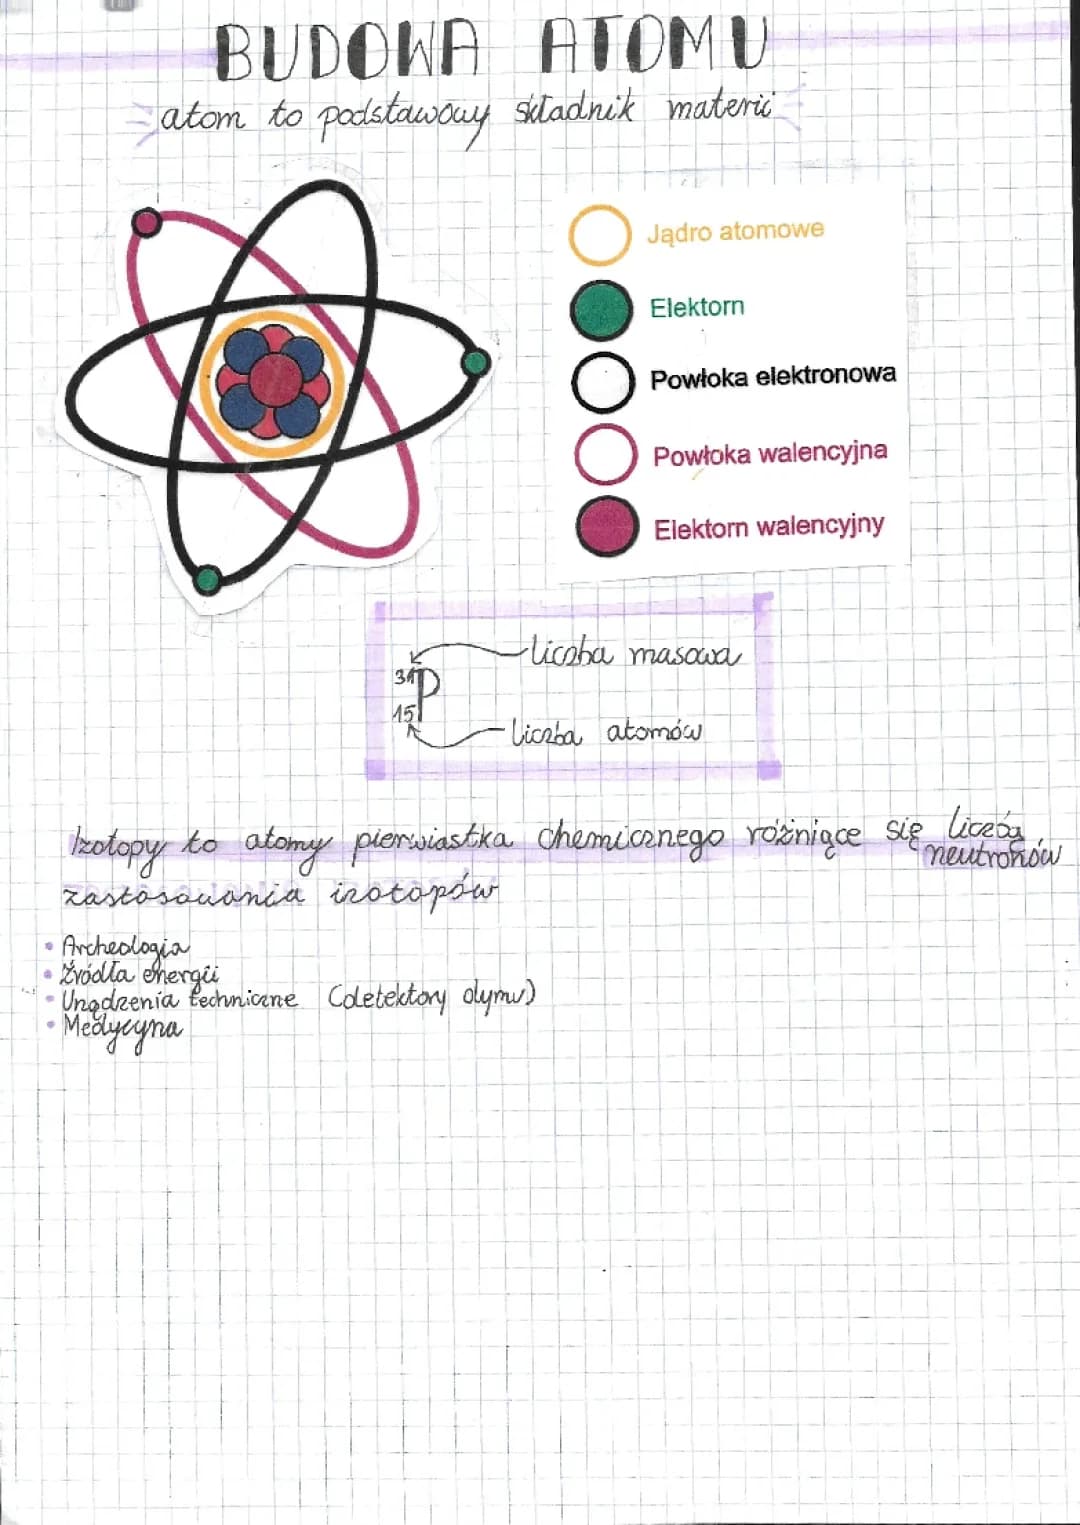 BUDOWA ATOMU
atom to podstawowy składnik materii
Jądro atomowe
Elektorn
Powłoka elektronowa
Powłoka walencyjna
Elektorn walencyjny
liczba masowa
31
P
15
liczba atomów
Izotopy to atomy pierwiastka chemicznego różniące się liczbą
neutronów
zastosowania izotopów
• Archeologia
• Źródła energii
• Urządzenia techniczne (detektory dymu)
• Medycyna